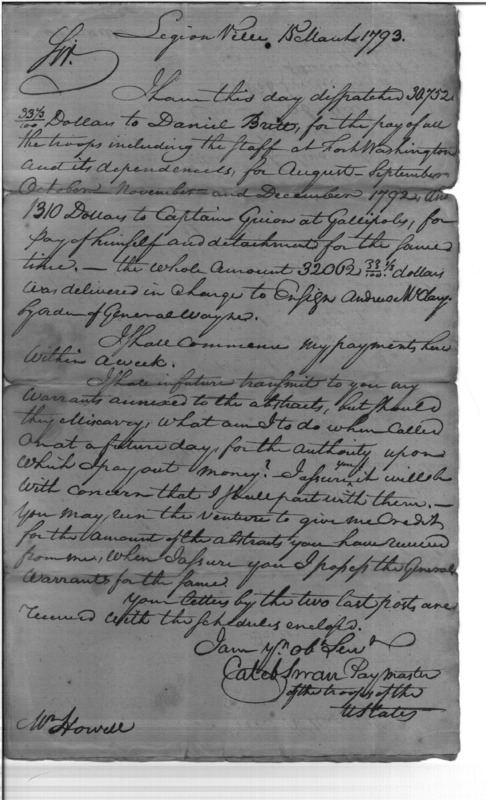 Legion Ville. 15 March 1793.
Sir.
I have this day dispatched 30,752
33⅓/100 Dollars to Daniel Britt, for the pay of all
the troops including the staff at Fort Washington
and its dependencies, for August - September
October November and December 1792 and
1310 Dollars to Captain Guion at Galliopolis, for
pay of himself and detachment for the same
time. — the whole Amount 32062 33⅓/100 dollars
was delivered in charge to Ensign Andrew McClary.
by order of General Wayne.
I shall commence my payments here
within a week.
I shall in future transmit to you my
warrants annexed to the abstracts, but should
they Miscarry, what am I to do when Called
on at a future day, for the authority upon
which I pay out money? I assure you, it will be
with concern that I shall part with them. —
You may, run the venture to give me Credit
for the amount of the abstracts you have received
from me, when I assure you I possess the Generals
Warrants for the same
Your letters by the two last posts are
received with the schedules enclosed.
I am yr. obt Servt
Caleb Swan Paymaster
of the troops of the
U States
Mr Howell